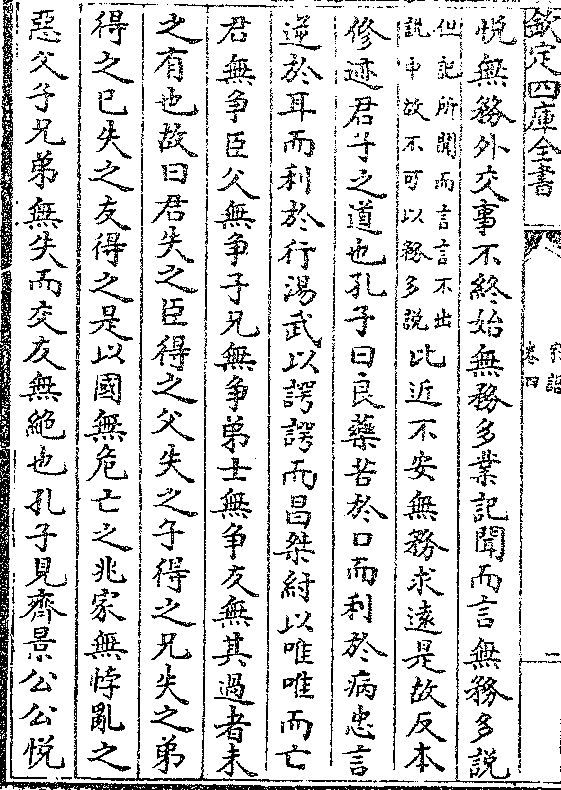 欽定四庫全書
家語
卷四
悅無務外交事不終始無務多業記聞而言無務多說
但記所聞而言言不出
說中故不可以務多說
比近不安無務求遠是故反本
修迹君子之道也孔子曰良藥苦於口而利於病忠言
逆於耳而利於行湯武以諤諤而昌桀紂以唯唯而亡
君無争臣父無争子兄無争弟士無争友無其過者未
之有也故曰君失之臣得之父失之子得之兄失之弟
得之已失之友得之是以國無危亡之兆家無悖亂之
惡父子兄弟無失而交友無絶也孔子見齊景公公悅